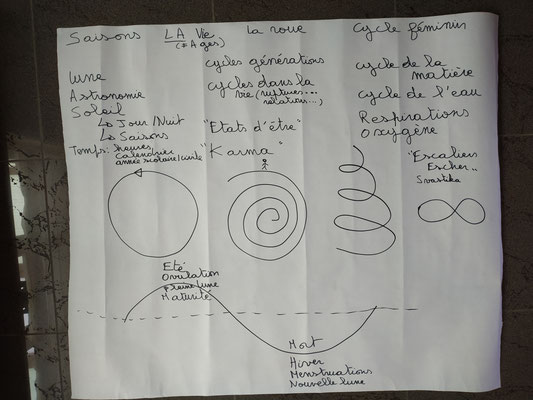 Saisons
LA Vie
(≠ Ages)
La roue
Cycle féminin
cycles générations
cycles dans la
vie (ruptures...
relations...)
cycle de la
matière
cycle de l'eau
Respirations
Oxygène
Lune
Astronomie
Soleil
↳ Jour/Nuit
↳ Saisons
Temps: heures
calendrier
année scolaire/civile
"Etats d'être"
"Karma"
"Escaliers
Escher"
Svastika
Eté
Ovulation
Pleine lune
Maturité
Mort
Hiver
Menstruations
Nouvelle lune